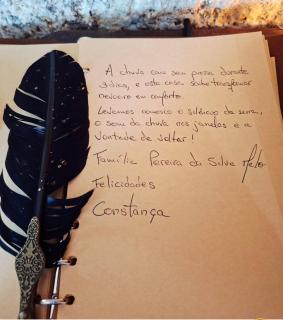 A chuva caiu sem pressa durante
3 dias, e esta casa soube transformar
nevoeiro em conforto.
Levamos connosco o silêncio da serra,
o som da chuva nas janelas e a
vontade de voltar!
Família Pereira da Silva Melo
Felicidades
Constança